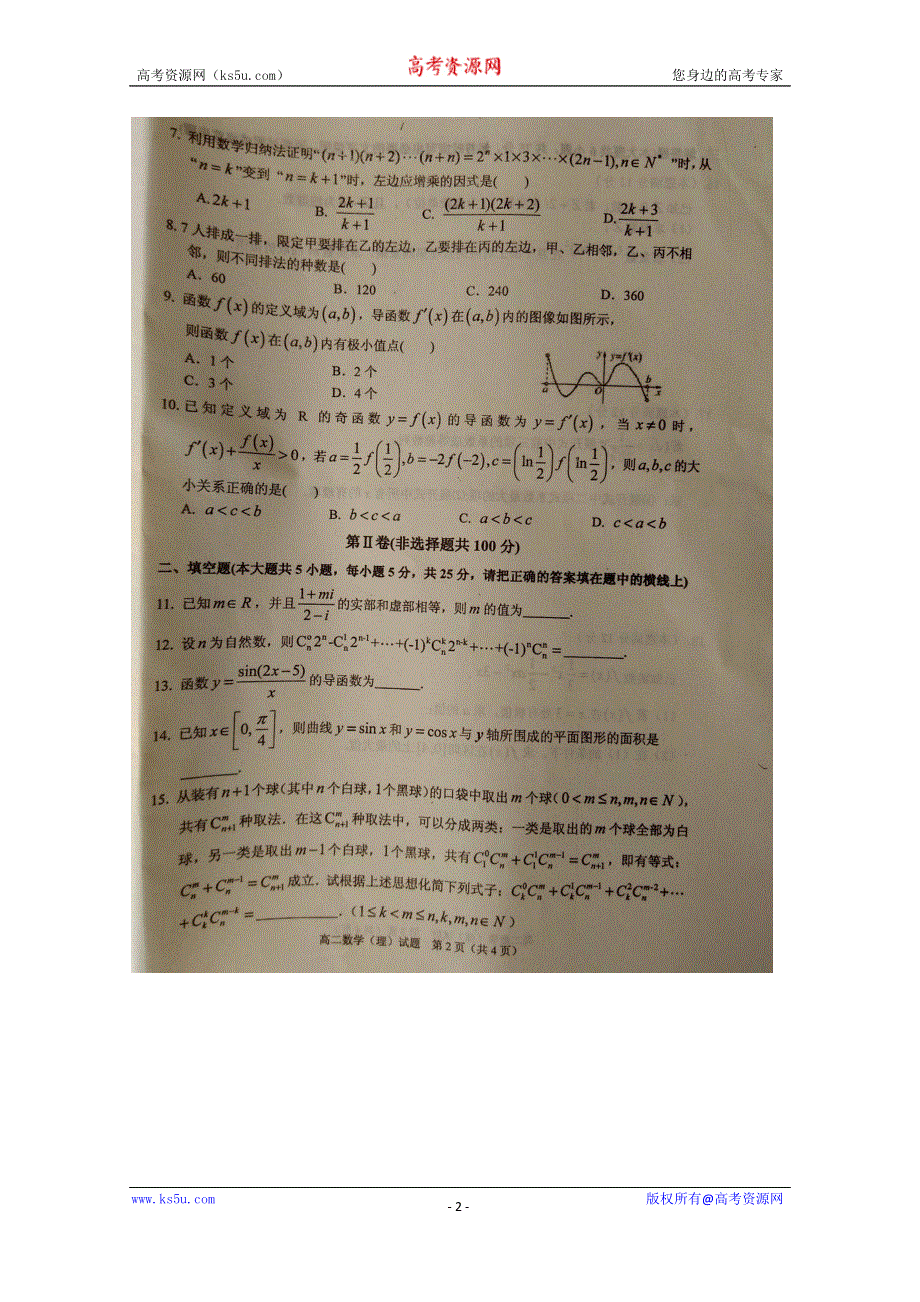 高考资源网（ks5u.com）
高考资源网
您身边的高考专家
7. 利用数学归纳法证明“(n+1)(n+2)⋯(n+n)=2ⁿ×1×3×⋯×(2n−1),n∈N* ”时,从
“n=k”变到 “n=k+1”时，左边应增乘的因式是(　　)
A. 2k+1　B. (2k+1)/(k+1)　C. (2k+1)(2k+2)/(k+1)　D. (2k+3)/(k+1)
8. 7 人排成一排，限定甲要排在乙的左边，乙要排在丙的左边，甲、乙相邻，乙、丙不相
邻，则不同排法的种数是(　　)
A. 60　B. 120　C. 240　D. 360
9. 函数 f(x) 的定义域为(a,b)，导函数 f′(x) 在(a,b)内的图像如图所示，
则函数 f(x) 在(a,b)内有极小值点(　　)
A. 1 个　B. 2 个
C. 3 个　D. 4 个
y y=f′(x)
a O b x
10. 已知定义域为 R 的奇函数 y=f(x) 的导函数为 y=f′(x)，当 x≠0 时，
f′(x)+f(x)/x>0，若 a=1/2 f(1/2),b=−2f(−2),c=(ln 1/2)f(ln 1/2)，则a,b,c的大
小关系正确的是(　　)
A. a<c<b　B. b<c<a　C. a<b<c　D. c<a<b
第Ⅱ卷(非选择题共 100 分)
二、填空题(本大题共 5 小题，每小题 5 分，共 25 分，请把正确的答案填在题中的横线上)
11. 已知m∈R，并且 (1+mi)/(2−i) 的实部和虚部相等，则m的值为______.
12. 设n为自然数，则Cₙ⁰2ⁿ-Cₙ¹2ⁿ⁻¹+⋯+(-1)ᵏCₙᵏ2ⁿ⁻ᵏ+⋯+(-1)ⁿCₙⁿ=________.
13. 函数 y=sin(2x−5)/x 的导函数为______.
14. 已知 x∈[0,π/4]，则曲线 y=sin x 和 y=cos x 与 y 轴所围成的平面图形的面积是
________.
15. 从装有 n+1个球（其中n个白球，1个黑球）的口袋中取出m个球（0<m≤n,m,n∈N），
共有 Cₙ₊₁ᵐ 种取法．在这Cₙ₊₁ᵐ 种取法中，可以分成两类：一类是取出的m个球全部为白
球，另一类是取出m−1个白球，1个黑球，共有 C₁⁰Cₙᵐ+C₁¹Cₙᵐ⁻¹=Cₙ₊₁ᵐ，即有等式：
Cₙᵐ+Cₙᵐ⁻¹=Cₙ₊₁ᵐ 成立．试根据上述思想化简下列式子：Cₖ⁰Cₙᵐ+Cₖ¹Cₙᵐ⁻¹+Cₖ²Cₙᵐ⁻²+⋯
+CₖᵏCₙᵐ⁻ᵏ=__________．（1≤k<m≤n,k,m,n∈N）
高二数学（理）试题　第 2 页（共 4 页）
www.ks5u.com
- 2 -
版权所有@高考资源网